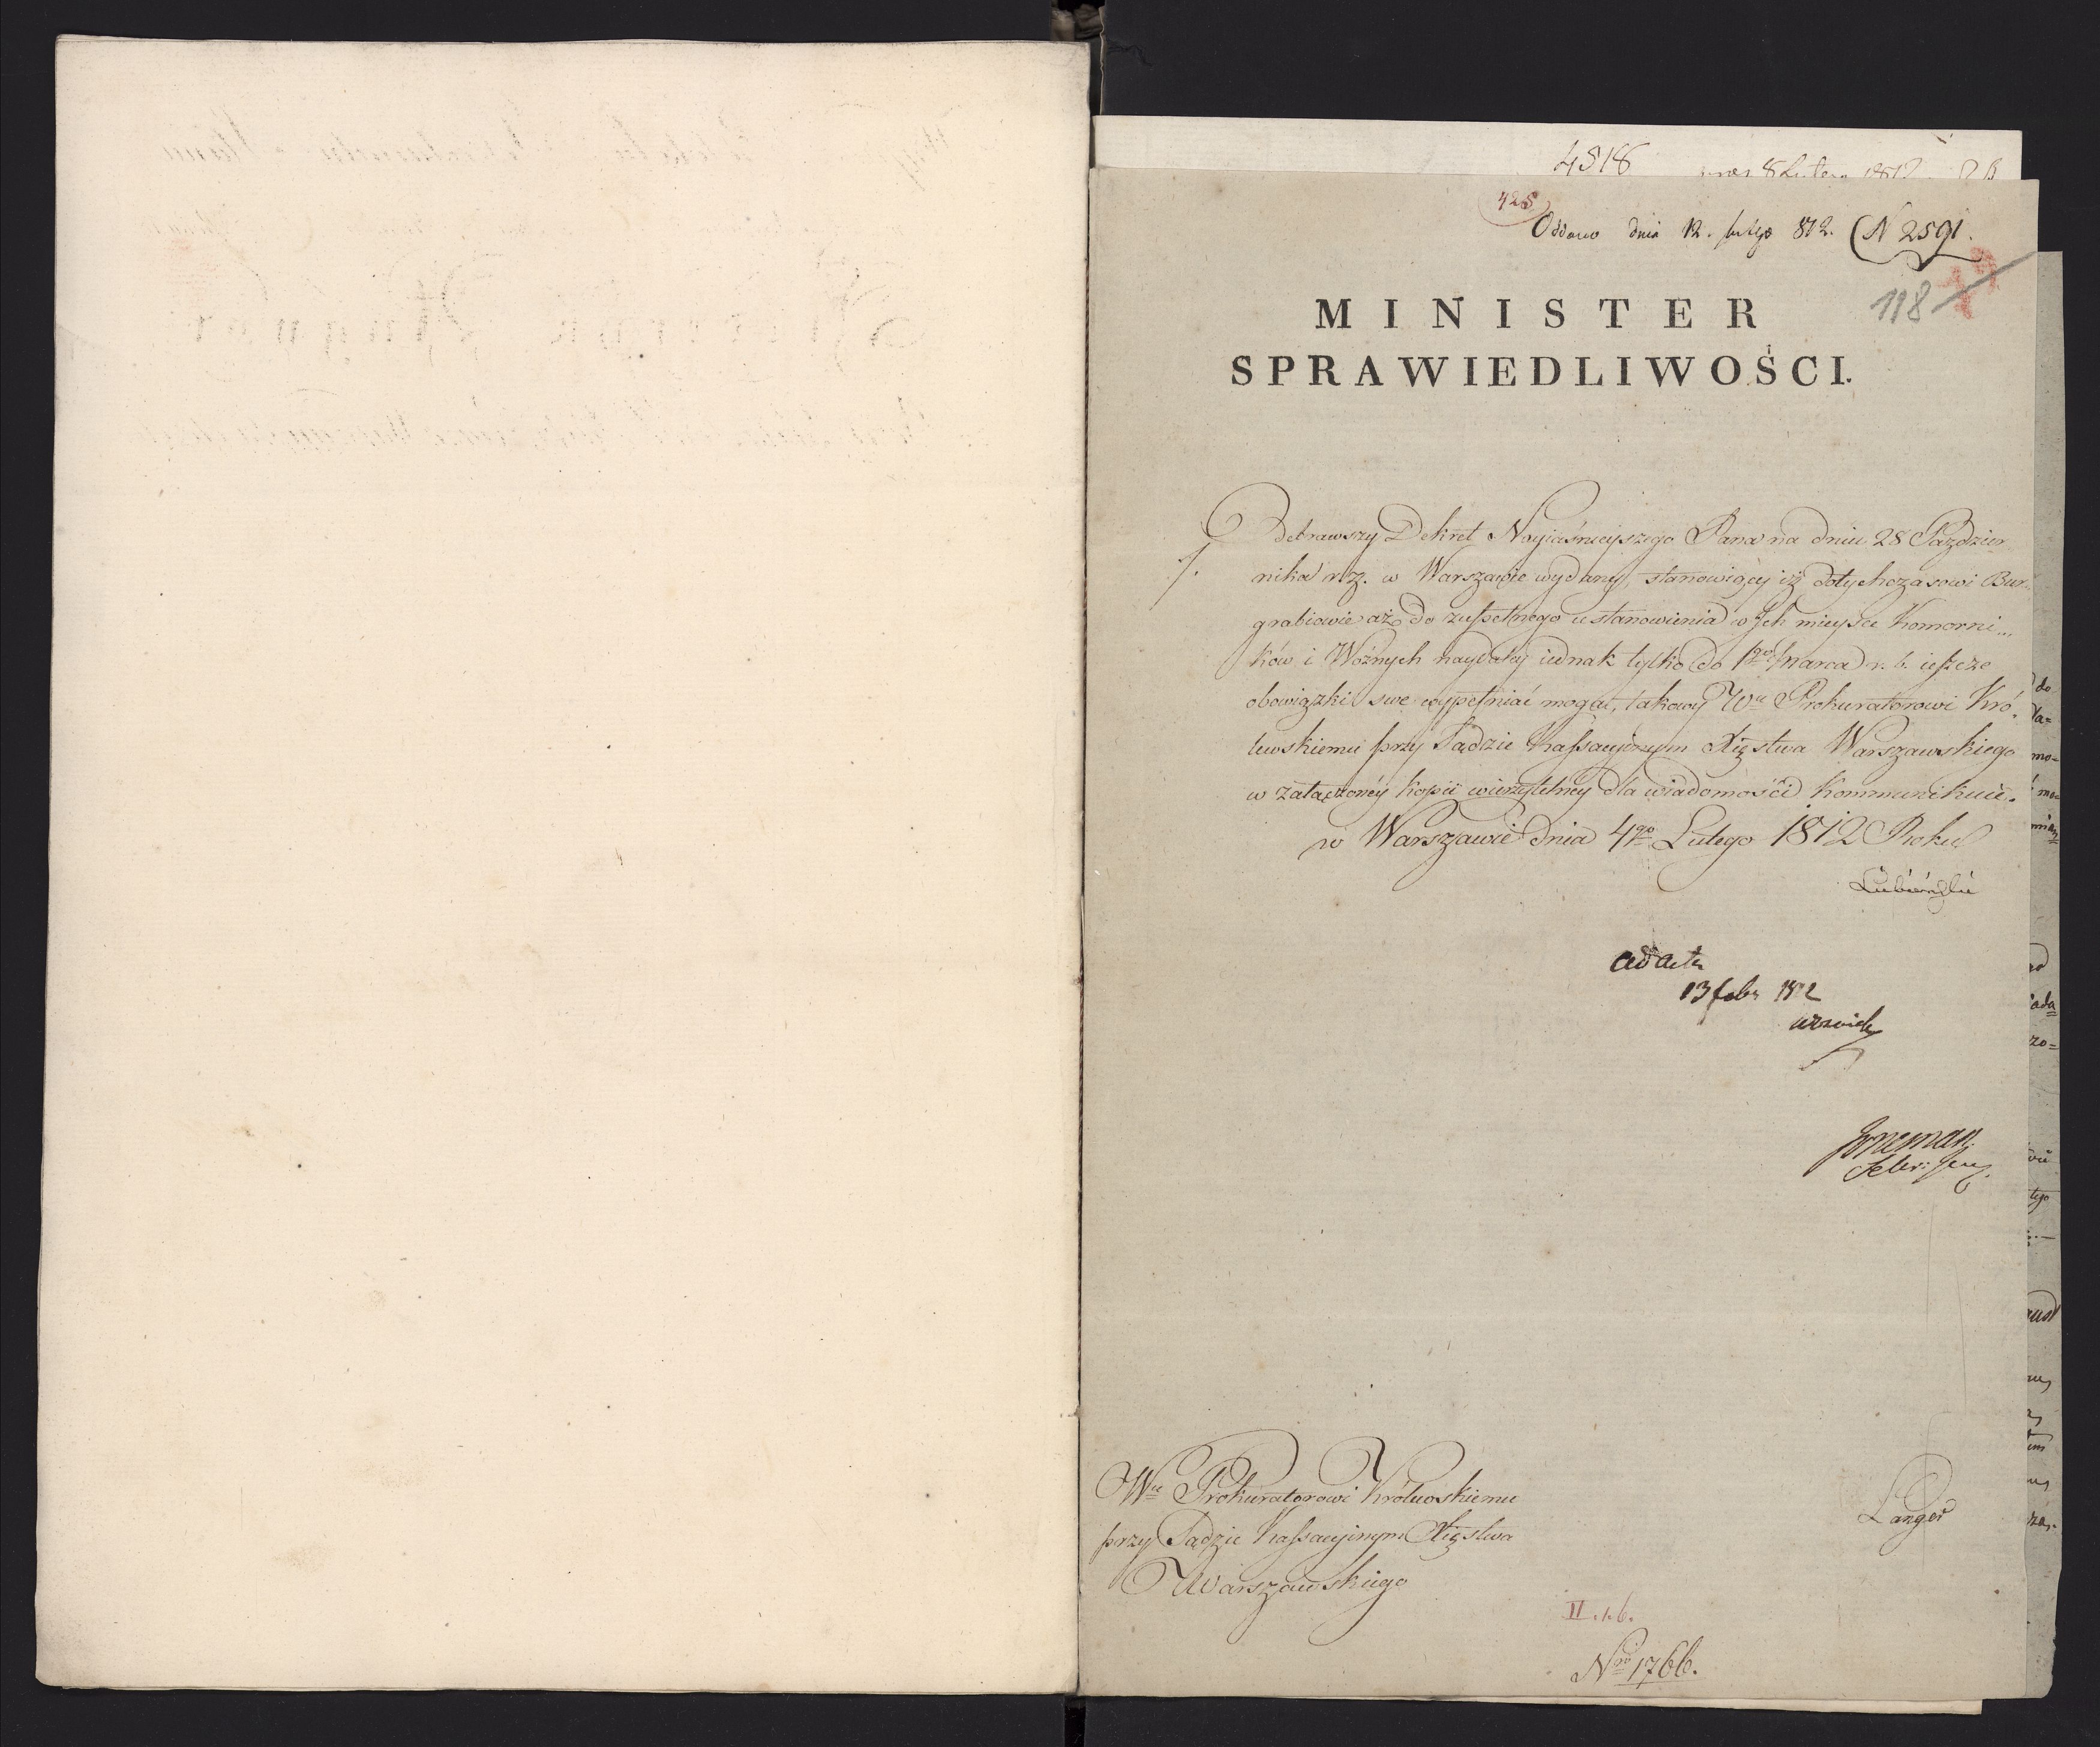 4518
8 Lutego 1812
425
Oddano dnia 12. lutego 812. (N 2591.
118
MINISTER
SPRAWIEDLIWOŚCI.
Odebrawszy Dekret Nayiaśnieyszego Pana na dniu 28 Paździer
1.
nika r. z. w Warszawie wydany, stanowiący iż dotychczasowi Bur-
grabiowie aż do zupełnego ustanowienia w Ich mieysce Komorni...
ków i Woźnych naydaley iednak tylko do 1go Marca r. b. ieszcze
obowiązki swe wypełniać mogą, takowy Wu Prokuratorowi Kró-
lewskiemu przy Sądzie Kassacyinym Xięstwa Warszawskiego
w załączoney kopii wierzytelney dla wiadomości kommunikuie.
w Warszawie dnia 4go Lutego 1812 Roku
Łubieński
ad acta
13 febr 1812
Jneman
Sekr: Jen:
Wu Prokuratorowi Królewskiemu
przy Sądzie Kassacyinym Xięstwa
Warszawskiego
Langer
II.1.6.
Nro 1766.